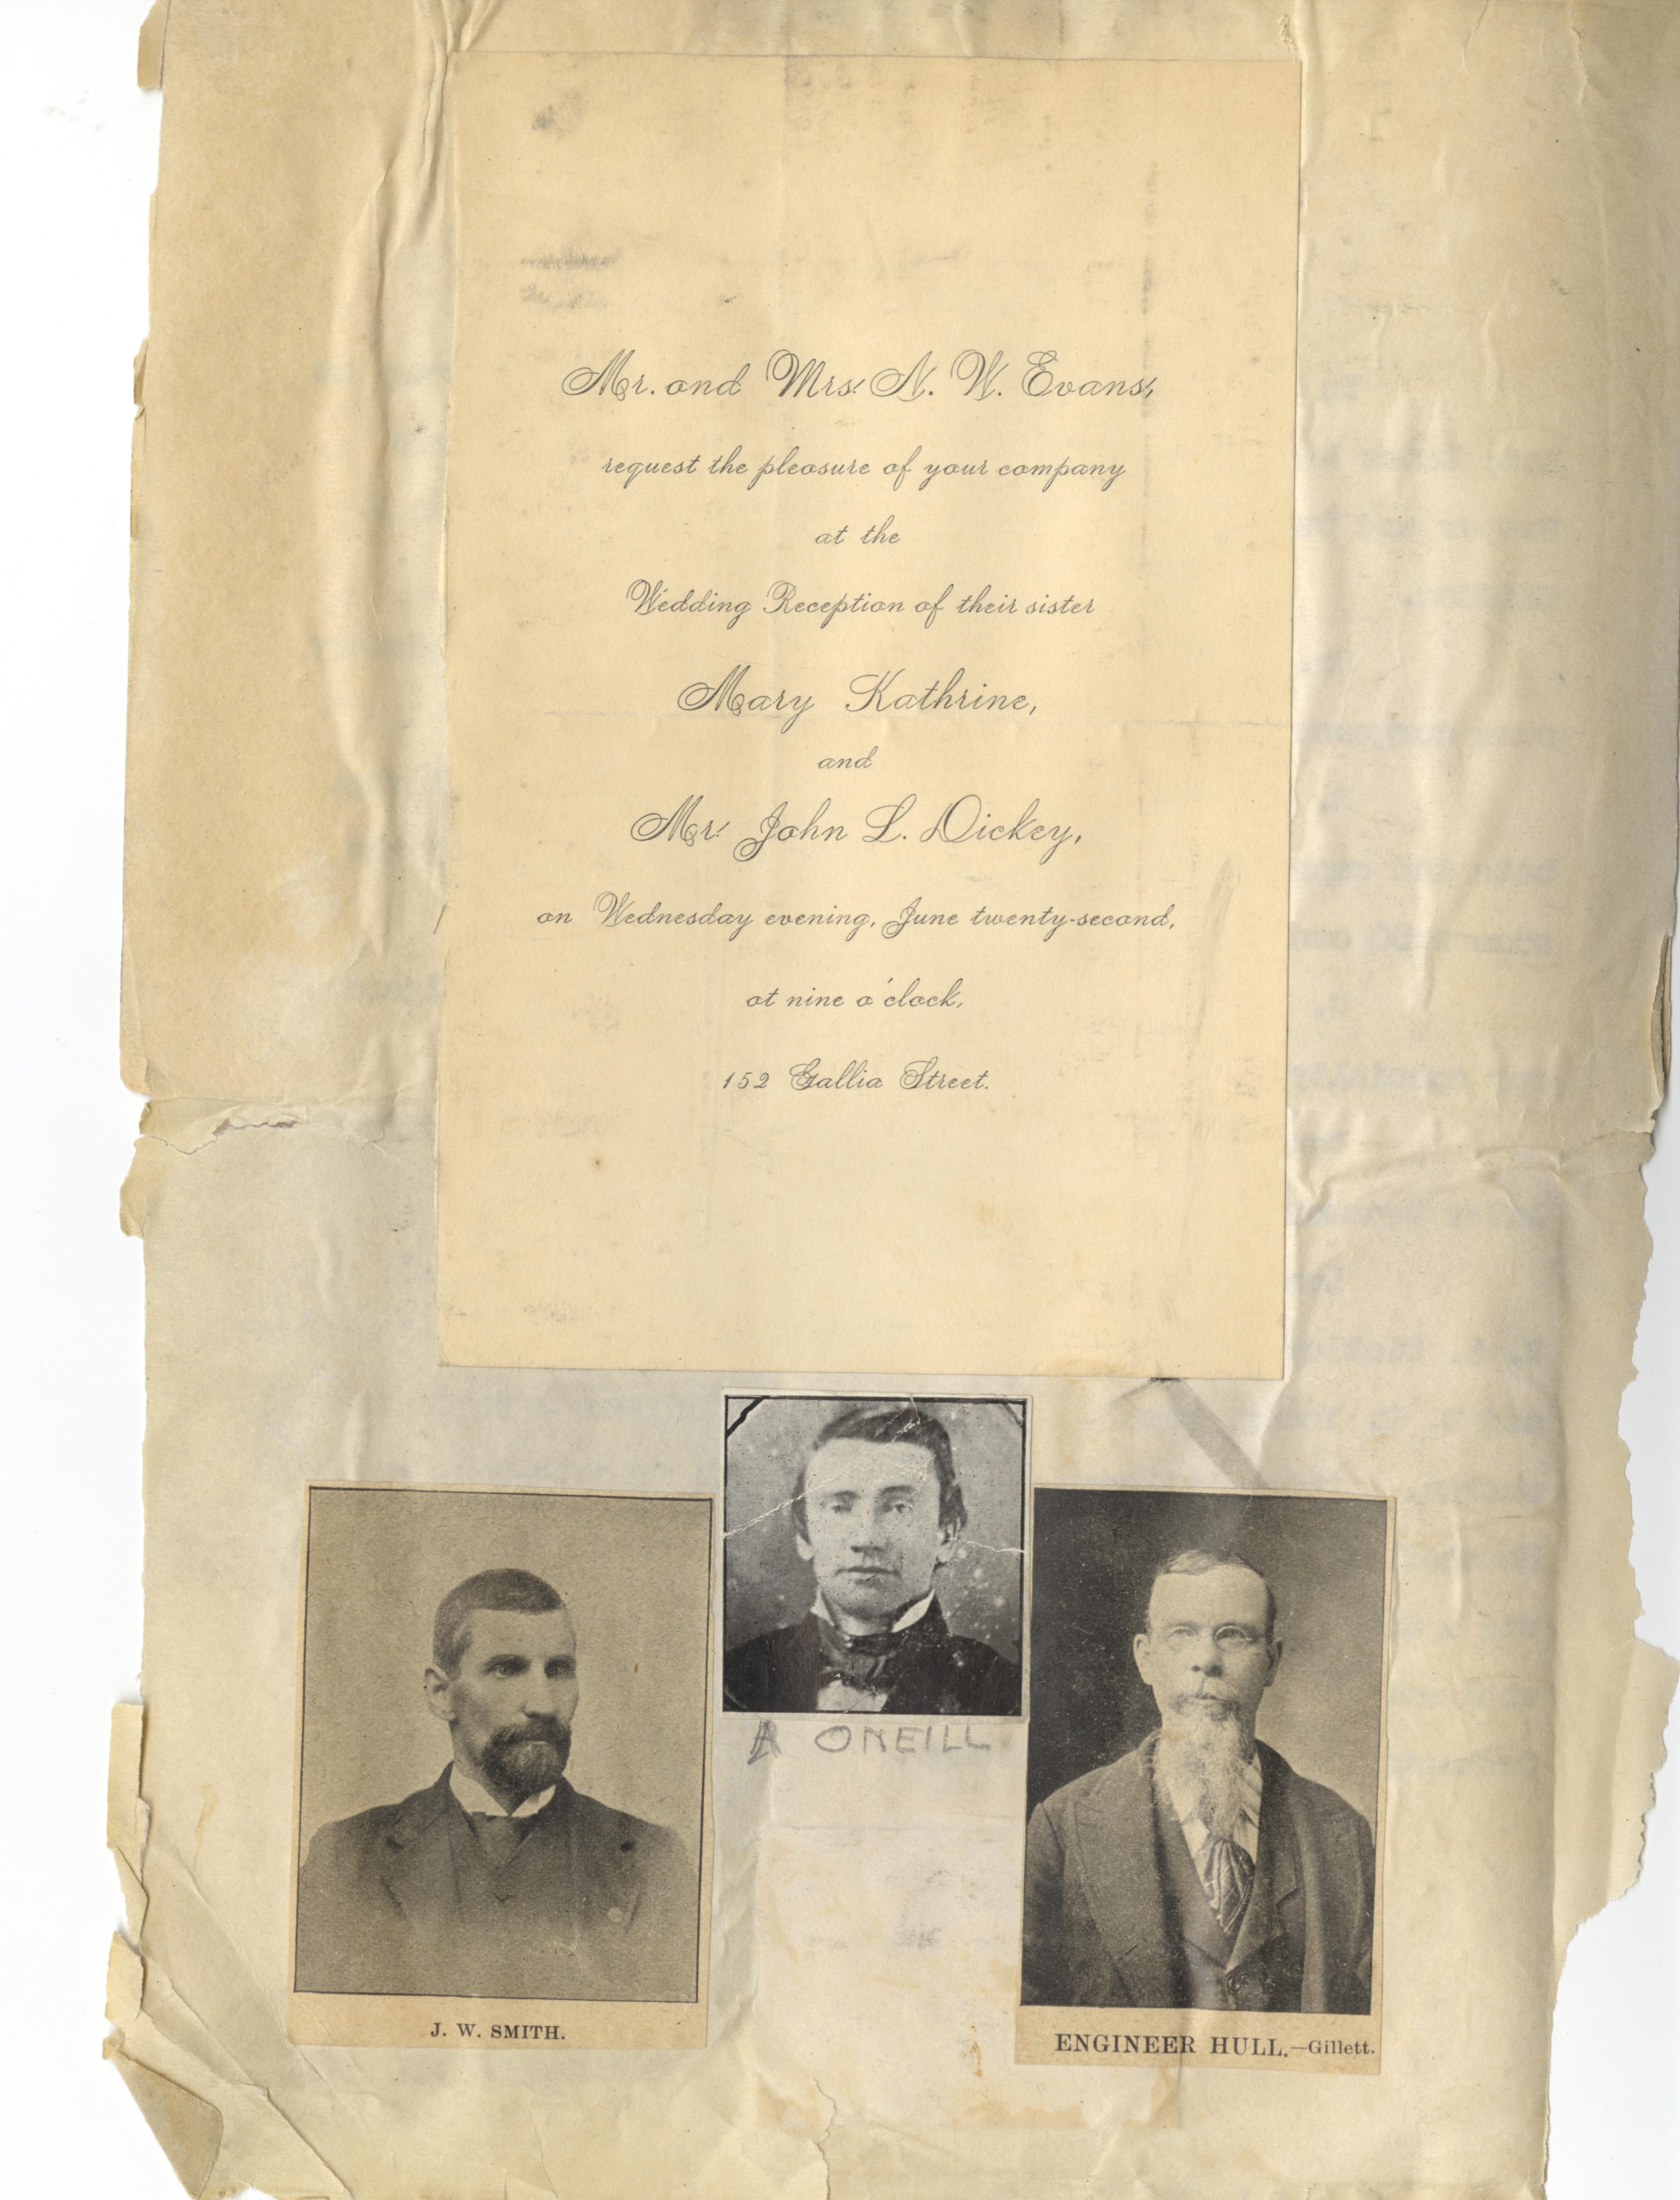 Mr. and Mrs. N. W. Evans,
request the pleasure of your company
at the
Wedding Reception of their sister
Mary Kathrine,
and
Mr. John L. Dickey,
on Wednesday evening, June twenty-second,
at nine o'clock,
152 Gallia Street.
ONEILL
J. W. SMITH.
ENGINEER HULL.—Gillett.